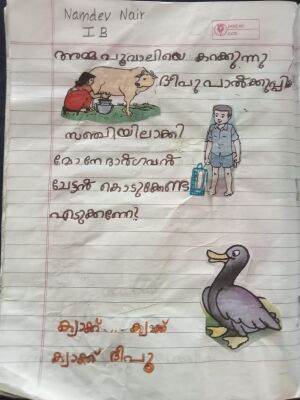 Namdev Nair
I B
അമ്മ പൂവാലിയെ കറക്കുന്നു
ദീപു പാൽക്കുപ്പി
സഞ്ചിയിലാക്കി
മോനേ ഭാർഗവൻ
ചേട്ടൻ കൊടുക്കേണ്ട
എടുക്കണേ?
ക്വാക്ക്.... ക്വാക്ക്
ക്വാക്ക് ദീപു